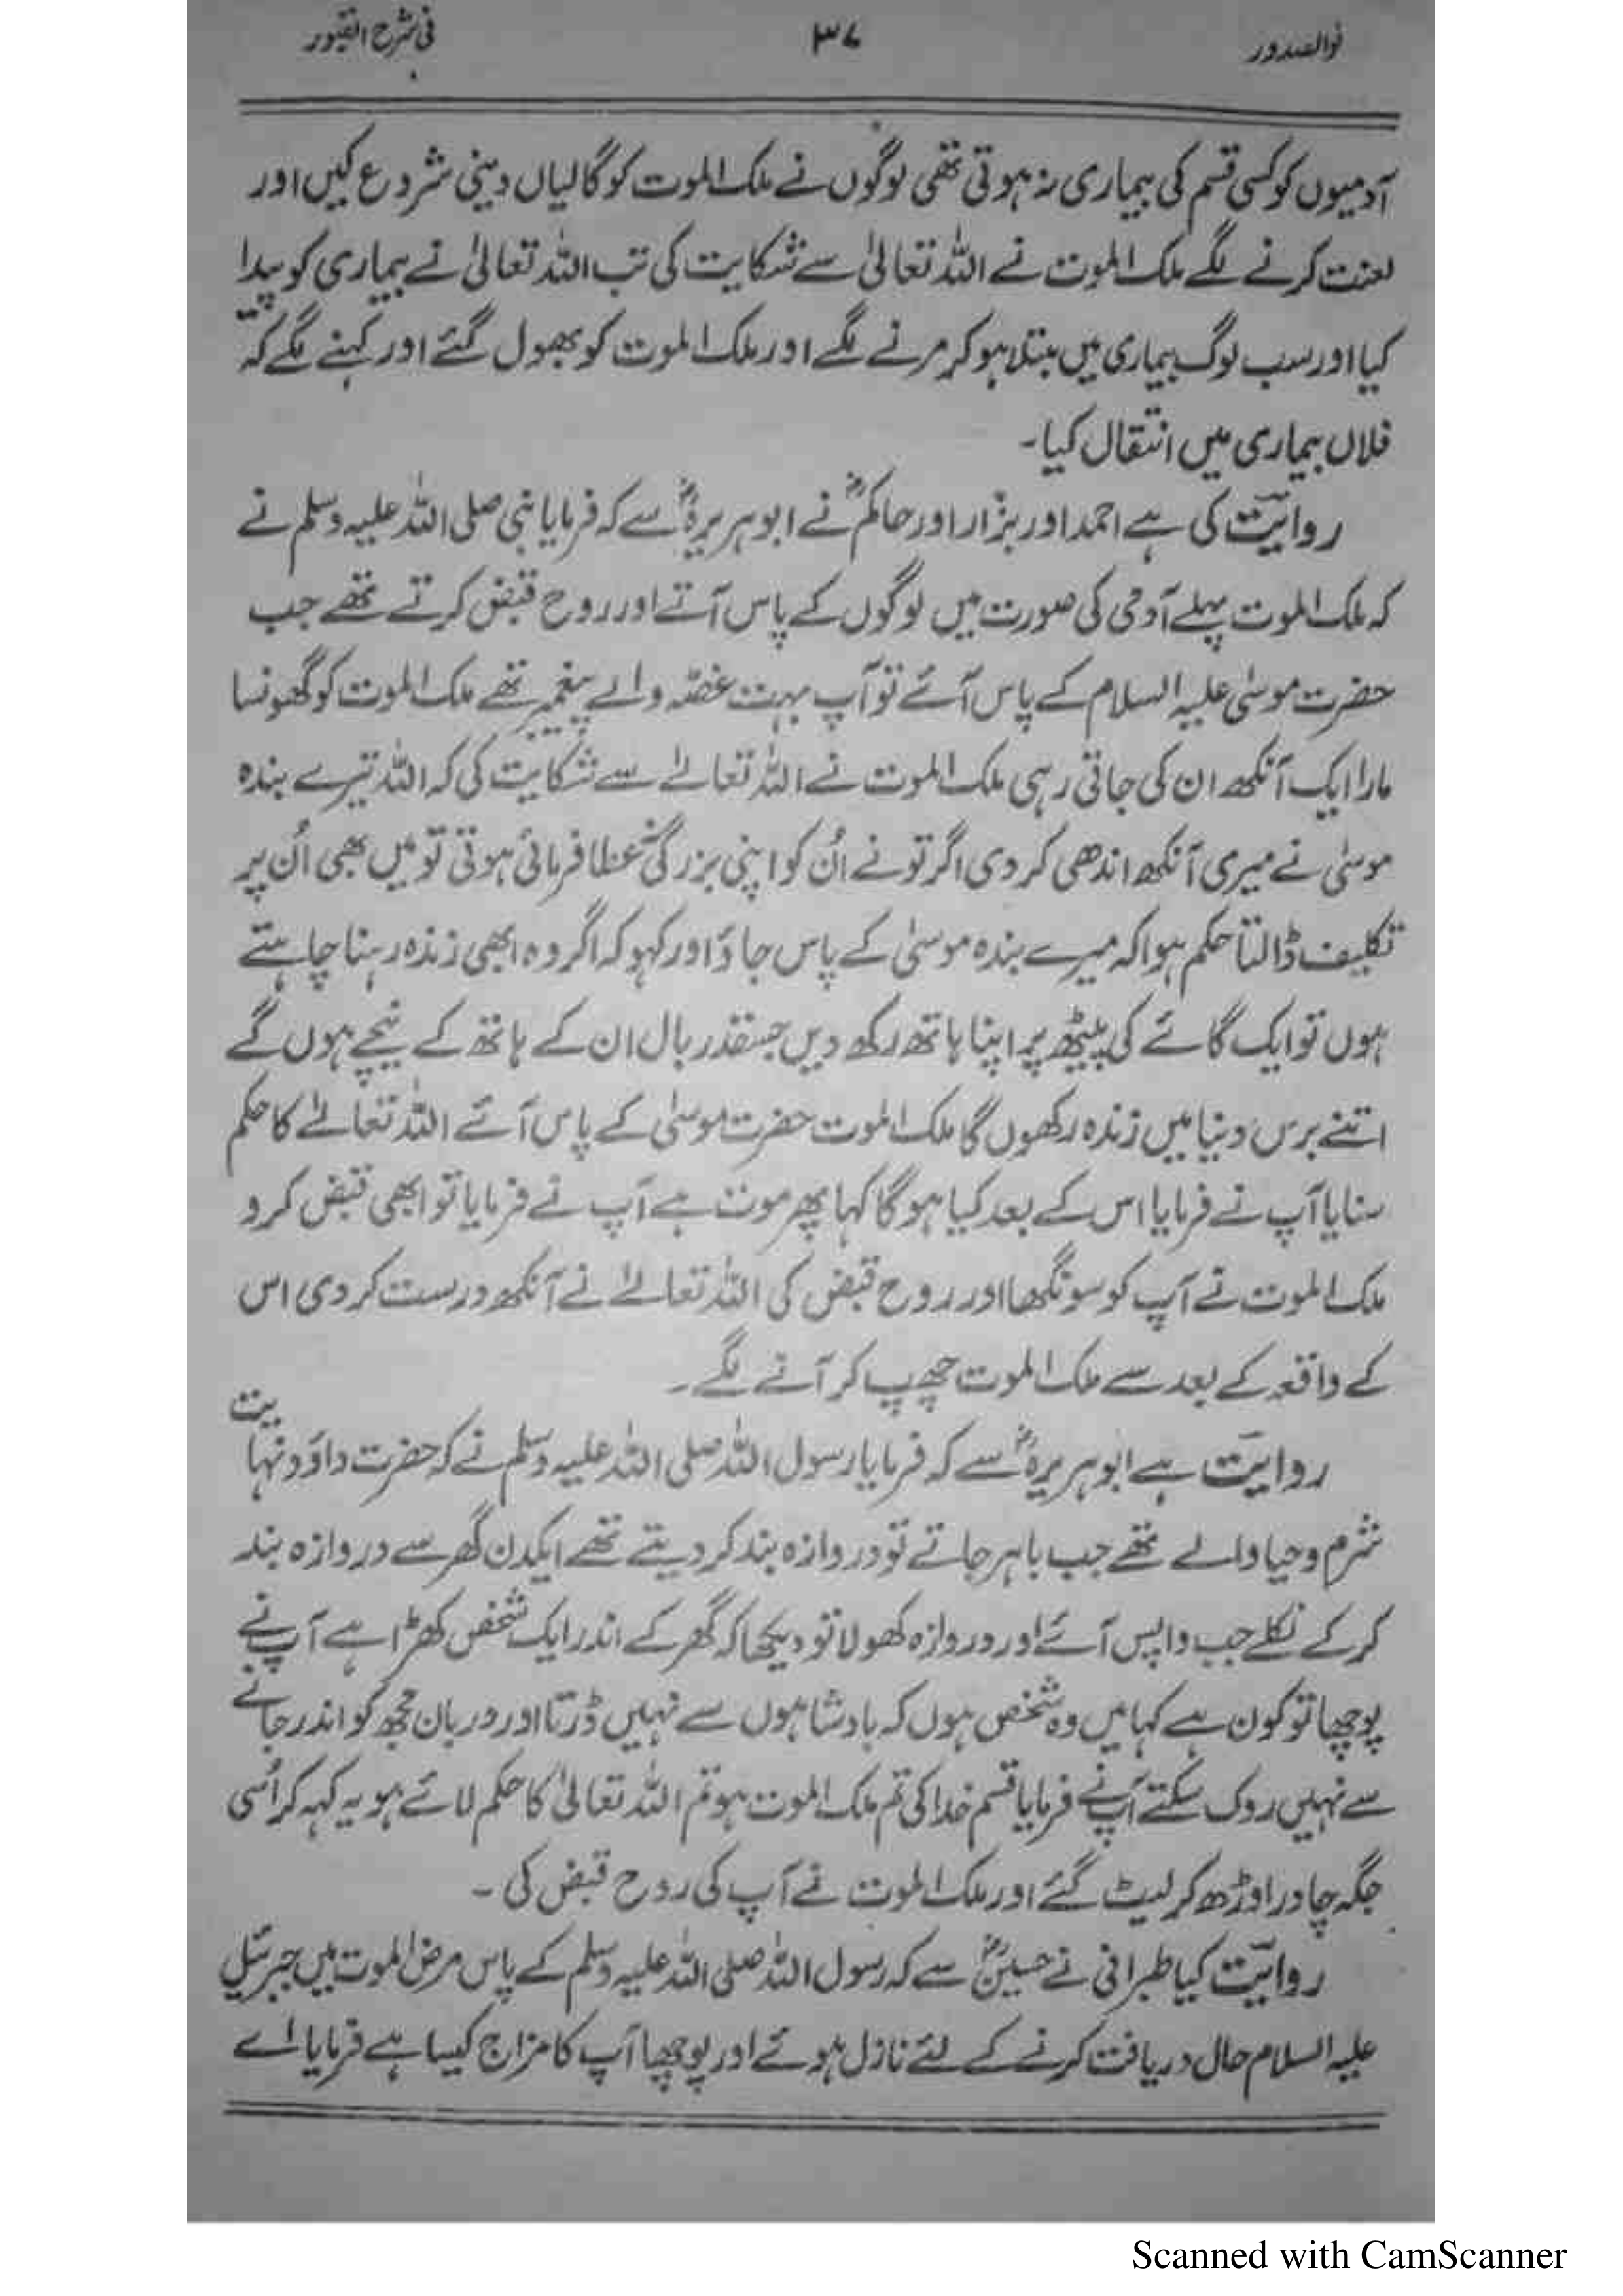 نورالصدور ۳۷ فی شرح القبور
آدمیوں کو کسی قسم کی بیماری نہ ہوتی تھی لوگوں نے ملک الموت کو گالیاں دینی شروع کیں اور
لعنت کرنے لگے ملک الموت نے اللہ تعالیٰ سے شکایت کی تب اللہ تعالیٰ نے بیماری کو پیدا
کیا اور سب لوگ بیماری میں مبتلا ہو کر مرنے لگے اور ملک الموت کو بھول گئے اور کہنے لگے کہ
فلاں بیماری میں انتقال کیا۔
روایت کی ہے احمد اور بزار اور حاکمؒ نے ابو ہریرہؓ سے کہ فرمایا نبی صلی اللہ علیہ وسلم نے
کہ ملک الموت پہلے آدمی کی صورت میں لوگوں کے پاس آتے اور روح قبض کرتے تھے جب
حضرت موسیٰ علیہ السلام کے پاس آئے تو آپ بہت غصہ والے پیغمبر تھے ملک الموت کو گھونسا
مارا ایک آنکھ ان کی جاتی رہی ملک الموت نے اللہ تعالےٰ سے شکایت کی کہ اللہ تیرے بندہ
موسیٰ نے میری آنکھ اندھی کر دی اگر تو نے اُن کو اپنی بزرگی عطا فرمائی ہوتی تو میں بھی اُن پر
تکلیف ڈالتا حکم ہوا کہ میرے بندہ موسیٰ کے پاس جاؤ اور کہو کہ اگر وہ ابھی زندہ رہنا چاہتے
ہوں تو ایک گائے کی پیٹھ پر اپنا ہاتھ رکھ دیں جسقدر بال ان کے ہاتھ کے نیچے ہوں گے
اتنے برس دنیا میں زندہ رکھوں گا ملک الموت حضرت موسیٰ کے پاس آئے اللہ تعالےٰ کا حکم
سنایا آپ نے فرمایا اس کے بعد کیا ہو گا کہا پھر موت ہے آپ نے فرمایا تو ابھی قبض کرو
ملک الموت نے آپ کو سونگھا اور روح قبض کی اللہ تعالےٰ نے آنکھ درست کر دی اس
کے واقعہ کے بعد سے ملک الموت چھپ کر آنے لگے۔
روایت ہے ابو ہریرہؓ سے کہ فرمایا رسول اللہ صلی اللہ علیہ وسلم نے کہ حضرت داؤد نہایت
شرم و حیا والے تھے جب باہر جاتے تو دروازہ بند کر دیتے تھے ایکدن گھر سے دروازہ بند
کر کے نکلے جب واپس آئے اور دروازہ کھولا تو دیکھا کہ گھر کے اندر ایک شخص کھڑا ہے آپ نے
پوچھا تو کون ہے کہا میں وہ شخص ہوں کہ بادشاہوں سے نہیں ڈرتا اور دربان مجھ کو اندر جانے
سے نہیں روک سکتے آپ نے فرمایا قسم خدا کی تم ملک الموت ہو تم اللہ تعالیٰ کا حکم لائے ہو یہ کہہ کر اُسی
جگہ چادر اوڑھ کر لیٹ گئے اور ملک الموت نے آپ کی روح قبض کی۔
روایت کیا طبرانی نے حسینؓ سے کہ رسول اللہ صلی اللہ علیہ وسلم کے پاس مرض الموت میں جبرئیل
علیہ السلام حال دریافت کرنے کے لئے نازل ہوئے اور پوچھا آپ کا مزاج کیسا ہے فرمایا اے
Scanned with CamScanner